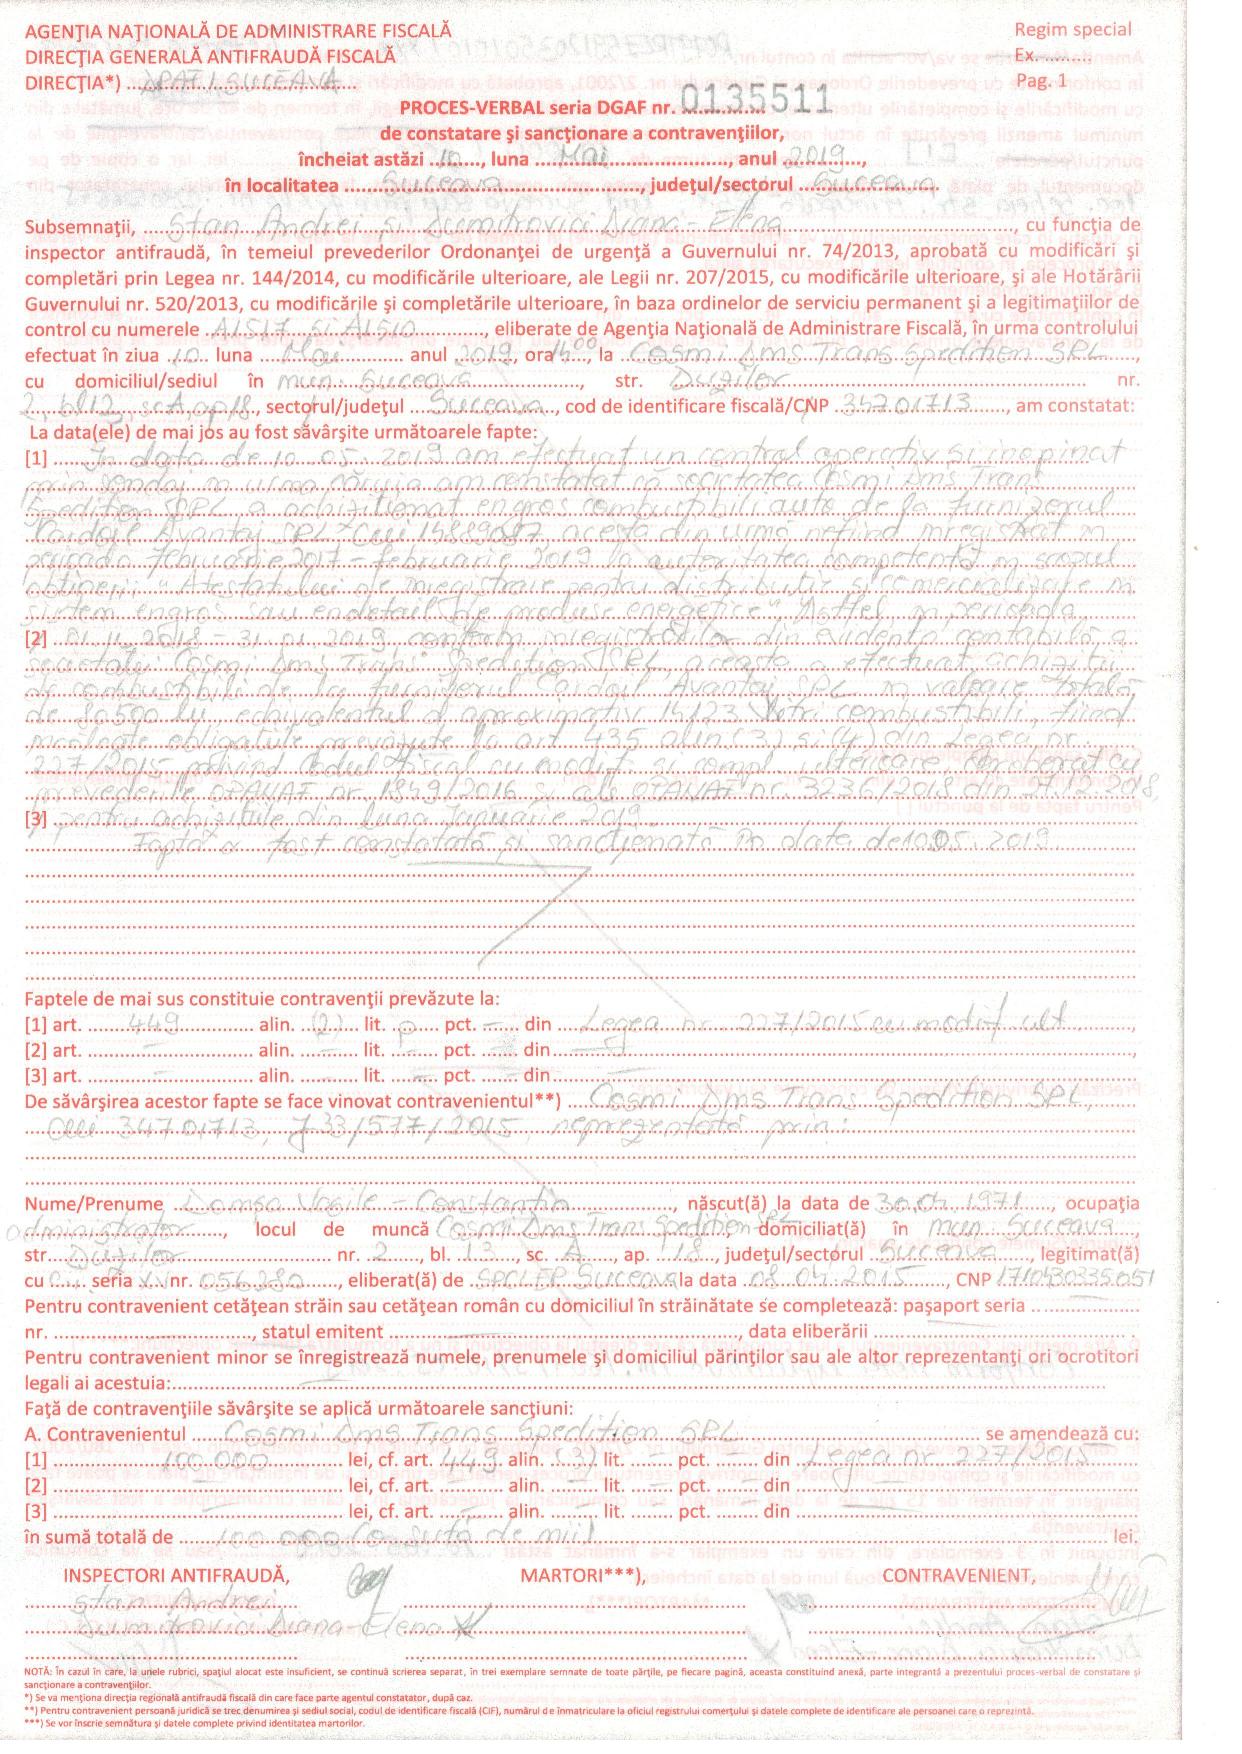 AGENȚIA NAȚIONALĂ DE ADMINISTRARE FISCALĂ
Regim special
DIRECȚIA GENERALĂ ANTIFRAUDĂ FISCALĂ
Ex...........
DIRECȚIA*) DRAF 1 SUCEAVA
Pag. 1
PROCES-VERBAL seria DGAF nr. 0135511
de constatare și sancționare a contravențiilor,
încheiat astăzi 10, luna Mai, anul 2019,
în localitatea Suceava, județul/sectorul Suceava
Subsemnații, Stan Andrei și Dumitrovici Diana-Elena, cu funcția de
inspector antifraudă, în temeiul prevederilor Ordonanței de urgență a Guvernului nr. 74/2013, aprobată cu modificări și
completări prin Legea nr. 144/2014, cu modificările ulterioare, ale Legii nr. 207/2015, cu modificările ulterioare, și ale Hotărârii
Guvernului nr. 520/2013, cu modificările și completările ulterioare, în baza ordinelor de serviciu permanent și a legitimațiilor de
control cu numerele A1517 și A1510, eliberate de Agenția Națională de Administrare Fiscală, în urma controlului
efectuat în ziua 10 luna Mai anul 2019, ora 14 00, la Cosmi Dms Trans Spedition SRL,
cu domiciliul/sediul în mun. Suceava, str. Duzilor nr.
2, bl 13, sc A, ap 18, sectorul/județul Suceava, cod de identificare fiscală/CNP 34701713, am constatat:
La data(ele) de mai jos au fost săvârșite următoarele fapte:
[1] În data de 10.05.2019 am efectuat un control operativ și inopinat
prin sondaj în urma căruia am constatat că societatea Cosmi Dms Trans
Spedition SRL a achiziționat engros combustibili auto de la furnizorul
Cardoil Avantaj SRL CUI, acesta din urmă nefiind înregistrat în
perioada februarie 2017 - februarie 2019 la autoritatea competentă în scopul
obținerii "Atestatului de înregistrare pentru distribuție și comercializare în
sistem engros sau endetail de produse energetice". Astfel, în perioada
[2] 01.11.2018 - 31.01.2019 conform înregistrărilor din evidența contabilă a
societății Cosmi Dms Trans Spedition SRL, aceasta a efectuat achiziții
de combustibili de la furnizorul Cardoil Avantaj SRL în valoare totală
de 80590 lei, echivalentul a aproximativ 14123 litri combustibili, fiind
încălcate obligațiile prevăzute la art 435 alin (3) și (4) din Legea nr.
227/2015 privind Codul fiscal cu modif și compl ulterioare coroborat cu
prevederile OPANAF nr. 1849/2016 și ale OPANAF nr. 3236/2018 din 27.12.2018,
[3] pentru achizițiile din luna Ianuarie 2019.
Fapta a fost constatată și sancționată în data de 10.05.2019.
Faptele de mai sus constituie contravenții prevăzute la:
[1] art. 449 alin. (2) lit. p pct. - din Legea nr. 227/2015 cu modif ult,
[2] art. - alin. - lit. - pct. - din -,
[3] art. - alin. - lit. - pct. - din -
De săvârșirea acestor fapte se face vinovat contravenientul**) Cosmi Dms Trans Spedition SRL,
CUI 34701713, J33/577/2015, reprezentată prin:
Nume/Prenume Domșa Vasile-Constantin, născut(ă) la data de 30.04.1971, ocupația
administrator, locul de muncă Cosmi Dms Trans Spedition SRL, domiciliat(ă) în mun. Suceava,
str. Duzilor nr. 2, bl. 13, sc. A, ap. 18, județul/sectorul Suceava, legitimat(ă)
cu C.I. seria XV nr. 056280, eliberat(ă) de SPCLEP Suceava la data 08.04.2015, CNP 1710430335051
Pentru contravenient cetățean străin sau cetățean român cu domiciliul în străinătate se completează: pașaport seria
nr. , statul emitent , data eliberării .
Pentru contravenient minor se înregistrează numele, prenumele și domiciliul părinților sau ale altor reprezentanți ori ocrotitori
legali ai acestuia:
Față de contravențiile săvârșite se aplică următoarele sancțiuni:
A. Contravenientul Cosmi Dms Trans Spedition SRL se amendează cu:
[1] 100.000 lei, cf. art. 449 alin. (3) lit. - pct. - din Legea nr. 227/2015
[2] - lei, cf. art. - alin. - lit. - pct. - din -
[3] - lei, cf. art. - alin. - lit. - pct. - din -
în sumă totală de 100.000 (o sută de mii) lei.
INSPECTORI ANTIFRAUDĂ,
MARTORI***),
CONTRAVENIENT,
Stan Andrei
Dumitrovici Diana-Elena
NOTĂ: În cazul în care, la unele rubrici, spațiul alocat este insuficient, se continuă scrierea separat, în trei exemplare semnate de toate părțile, pe fiecare pagină, aceasta constituind anexă, parte integrantă a prezentului proces-verbal de constatare și
sancționare a contravențiilor.
*) Se va menționa direcția regională antifraudă fiscală din care face parte agentul constatator, după caz.
**) Pentru contravenient persoană juridică se trec denumirea și sediul social, codul de identificare fiscală (CIF), numărul de înmatriculare la oficiul registrului comerțului și datele complete de identificare ale persoanei care o reprezintă.
***) Se vor înscrie semnătura și datele complete privind identitatea martorilor.